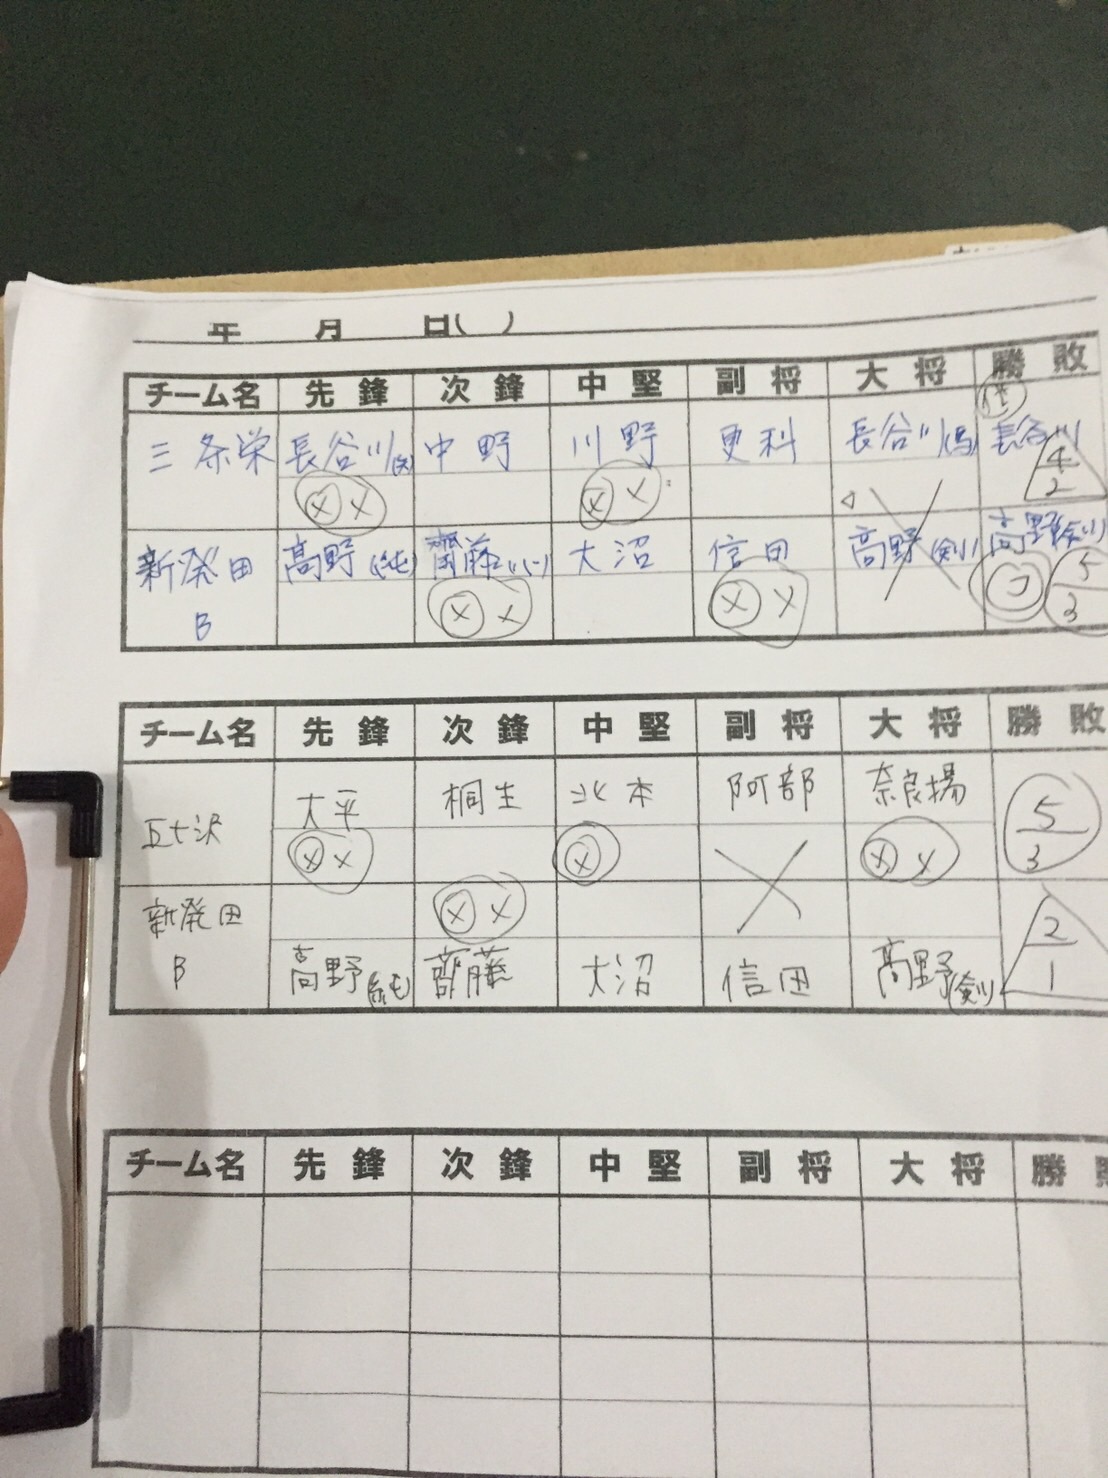 年 月 日( )
チーム名 先鋒 次鋒 中堅 副将 大将 勝敗
三条栄 長谷川 中野 川野 更科 長谷川 長谷川
メ メ メ メ 4
2
新発田 高野(純) 齋藤 大沼 信田 高野(剣) 高野(剣)
B メ メ メ メ コ 5
3
チーム名 先鋒 次鋒 中堅 副将 大将 勝敗
五十沢 大平 桐生 北本 阿部 奈良場 5
メ メ メ メ メ 3
新発田 メ メ 2
B 高野(純) 齋藤 大沼 信田 高野(剣) 1
チーム名 先鋒 次鋒 中堅 副将 大将 勝